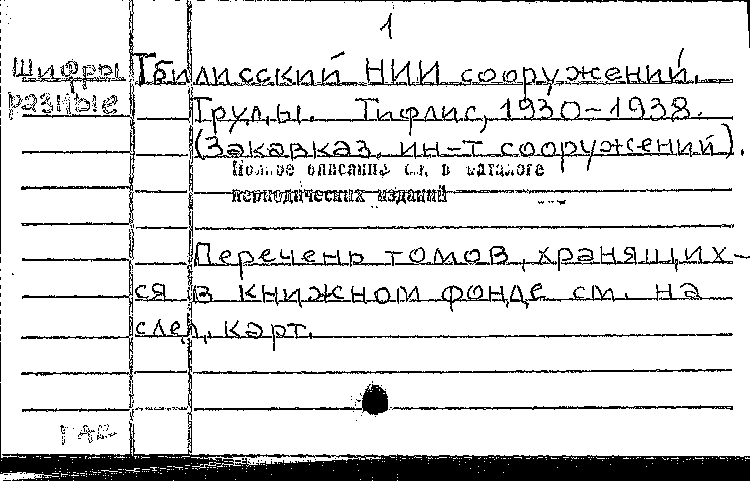 1
Шифры
разные
Тбилисский НИИ сооружений.
Труды. Тифлис, 1930-1938.
(Закавказ. ин-т сооружений).
Полное описание см. в каталоге
периодических изданий
Перечень томов, хранящих-
ся в книжном фонде см. на
след. карт.